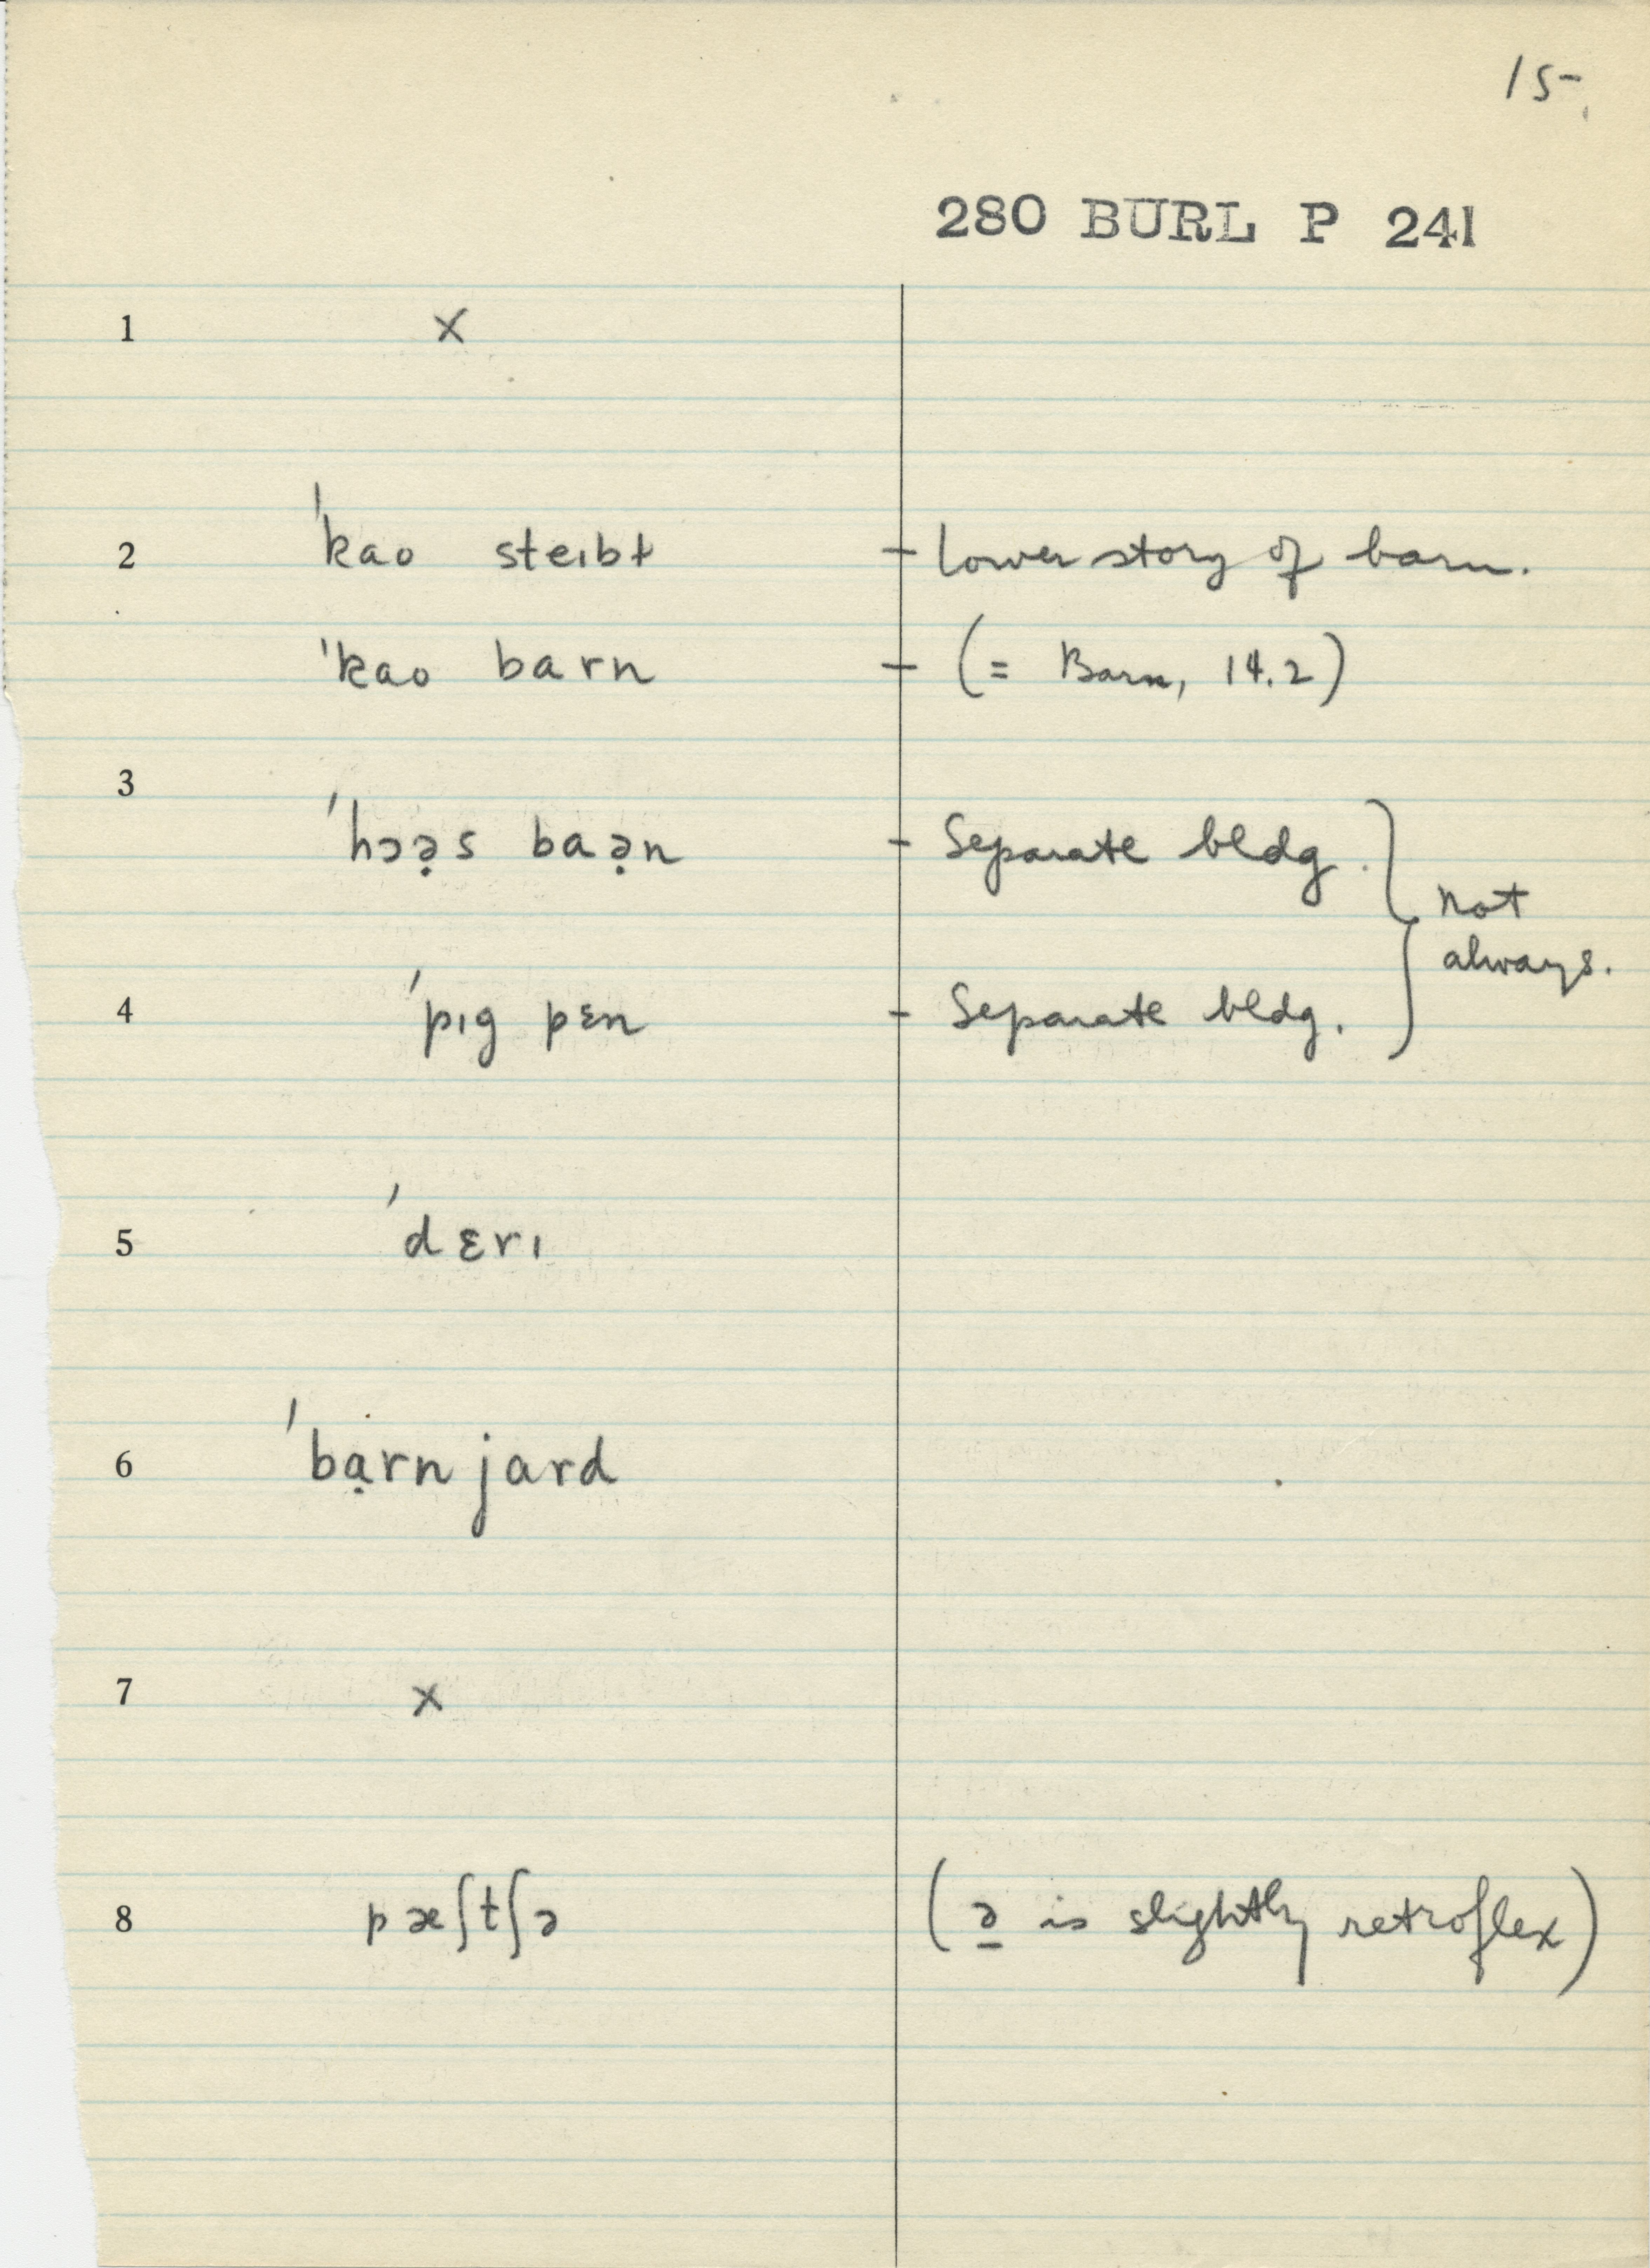 15
280 BURL P 241
1 x
2 'kao steıbɫ - lower story of barn.
'kao barn - (= Barn, 14.2)
3
'hɔə̣s baə̣n - Separate bldg. } not
always.
4 'pıg pɛn - Separate bldg. }
5 'dɛrı
6 'bạrn jard
7 x
8 pæʃtʃə (ə is slightly retroflex)